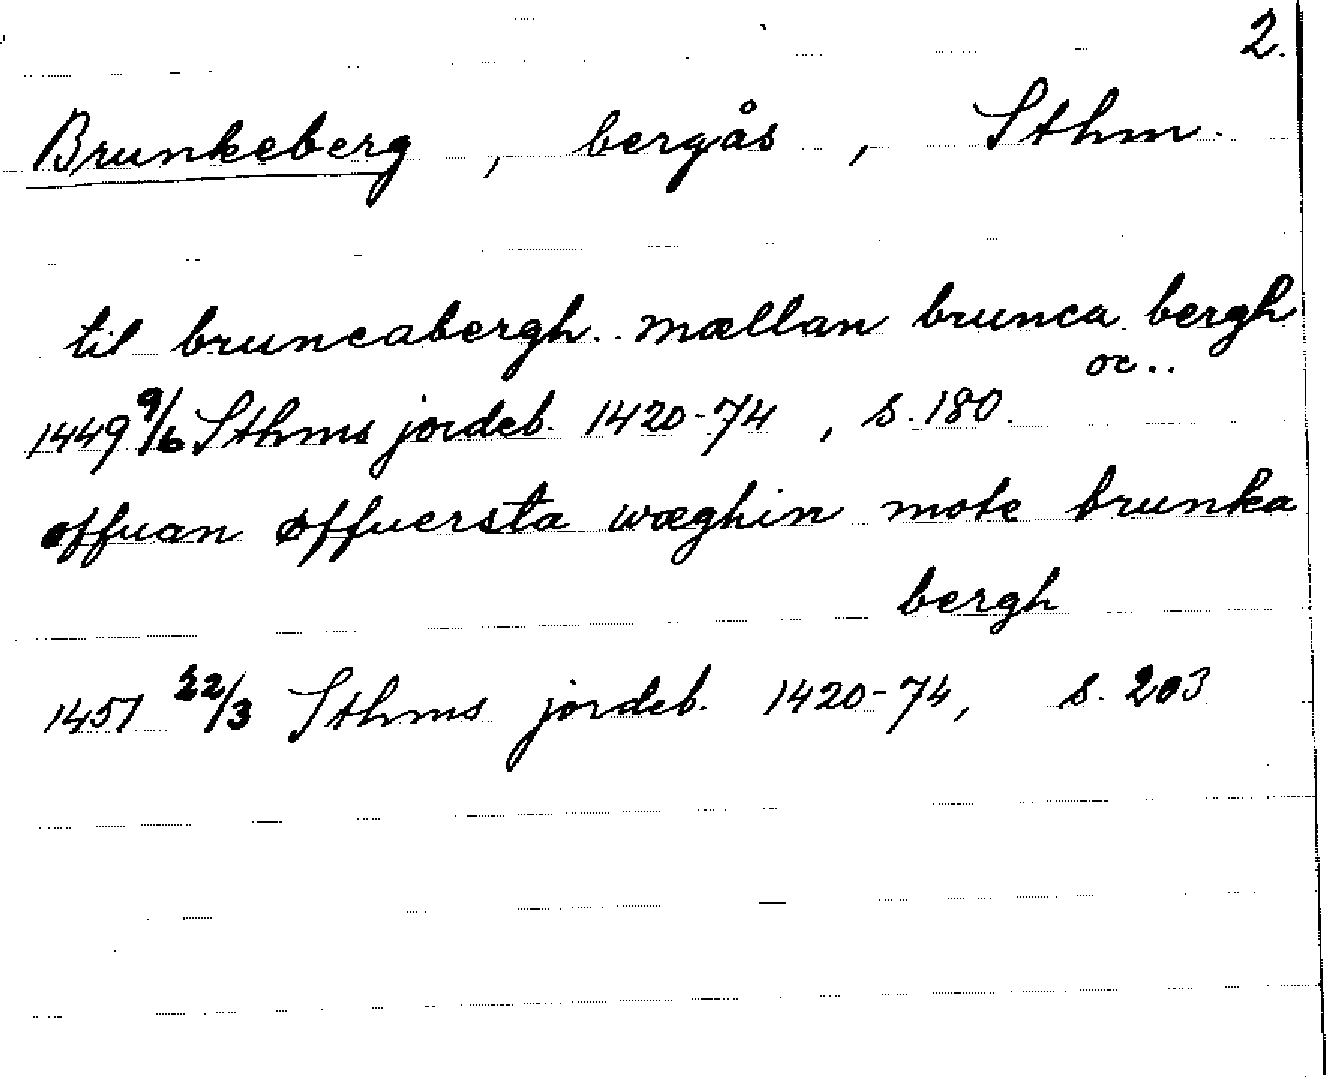 2.
Brunkeberg, bergås, Sthm.
til bruncabergh.. mællan brunca bergh
oc..
1449 9/6 Sthms jordeb. 1420-74, s. 180.
offuan øffuersta wæghin mote brunka
bergh
1451 22/3 Sthms jordeb. 1420-74, s. 203